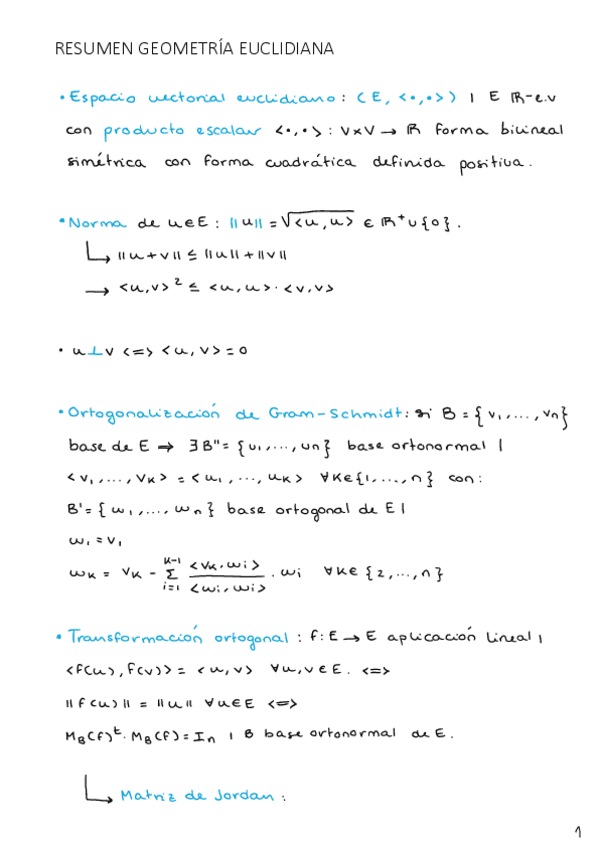 RESUMEN GEOMETRÍA EUCLIDIANA
• Espacio vectorial euclidiano: (E, <•,•>) | E ℝ-e.v
con producto escalar <•,•>: V×V → ℝ forma bilineal
simétrica con forma cuadrática definida positiva.
• Norma de u∈E: ||u|| = √<u,u> ∈ ℝ⁺∪{0}.
↳ ||u+v|| ≤ ||u|| + ||v||
→ <u,v>² ≤ <u,u>·<v,v>
• u⊥v <=> <u,v> = 0
• Ortogonalización de Gram-Schmidt: si B = {v₁,...,vn}
base de E => ∃B''= {u₁,...,un} base ortonormal |
<v₁,...,vK> = <u₁,...,uK> ∀K∈{1,...,n} con:
B'= {w₁,...,wn} base ortogonal de E|
w₁ = v₁
wK = vK - Σ_{i=1}^{K-1} <vK,wi>/<wi,wi> · wi ∀K∈{2,...,n}
• Transformación ortogonal: f:E→E aplicación lineal |
<f(u),f(v)> = <u,v> ∀u,v∈E. <=>
||f(u)|| = ||u|| ∀u∈E <=>
M_B(f)ᵗ·M_B(f) = In | B base ortonormal de E.
↳ Matriz de Jordan:
1